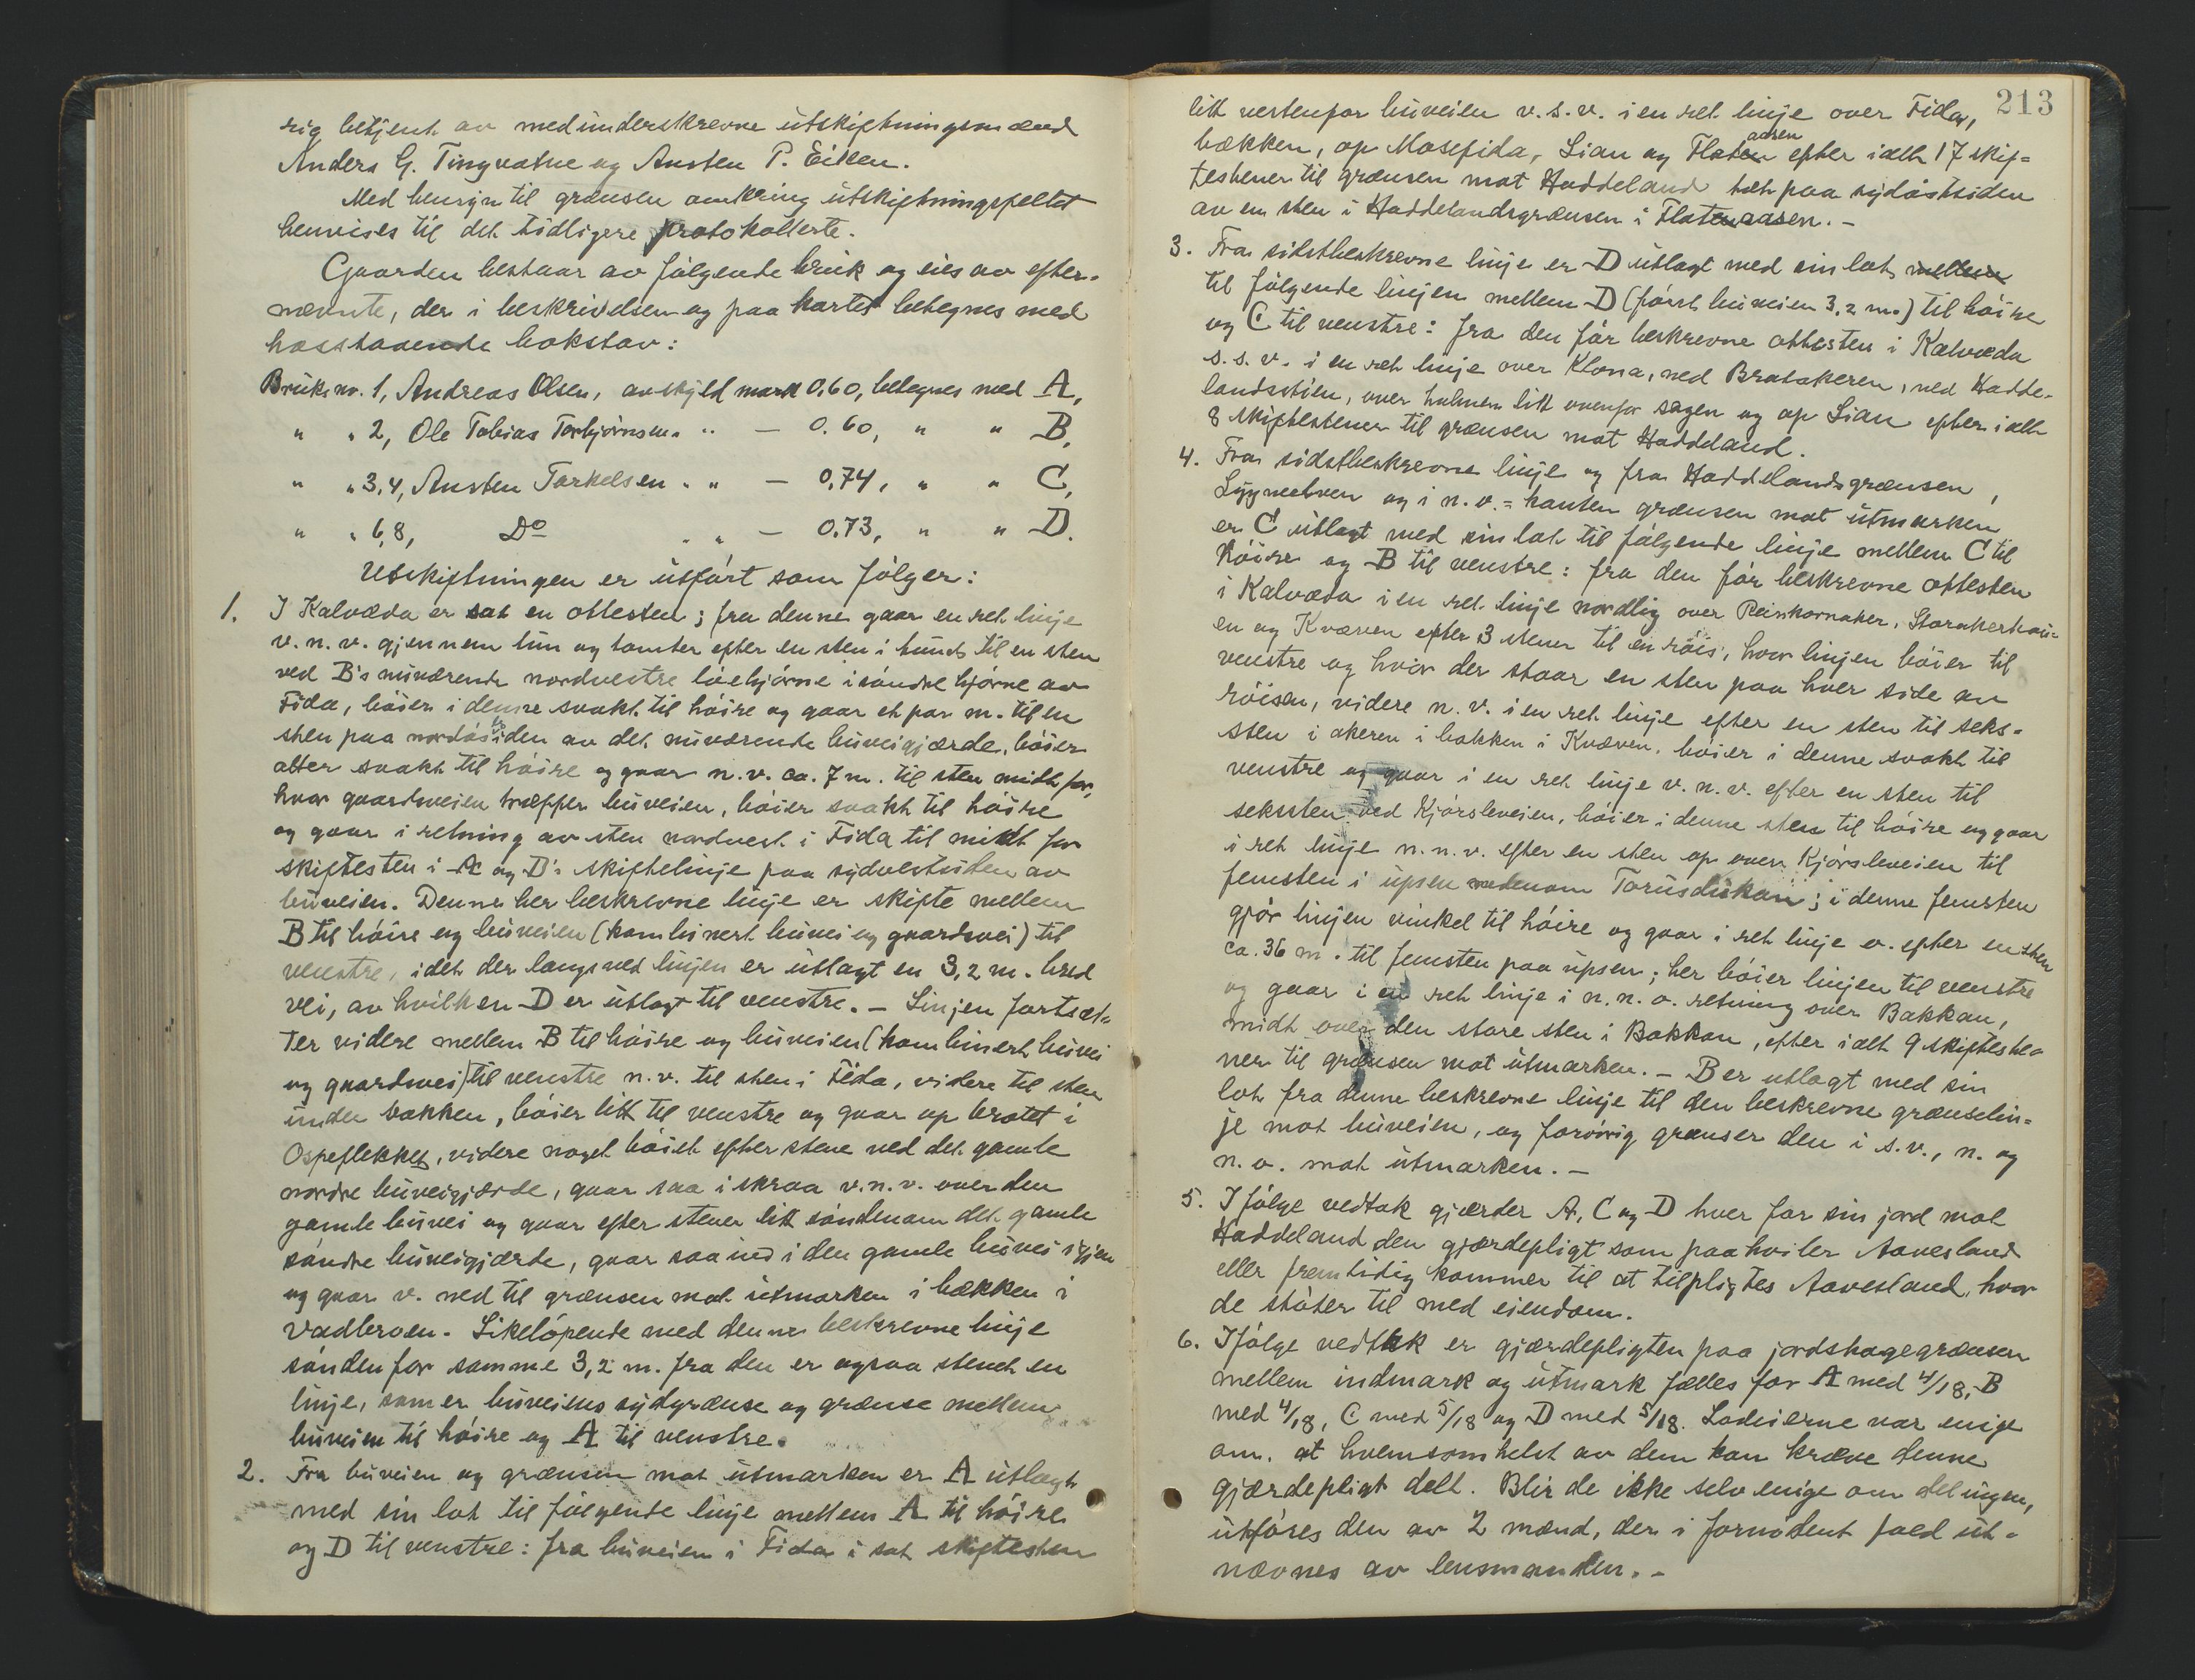 sig betjent av medunderskrevne utskiftningsmænd
Anders G. Tingvatne og Austen P. Eiken.
Med hensyn til grænsen omkring utskiftningsfeltet
henvises til det tidligere protokollerte.
Gaarden bestaar av følgende bruk og eies av efter-
nævnte, der i beskrivelsen og paa kartet betegnes med
hosstaaende bokstav:
Bruks nr. 1, Andreas Olsen, avskyld mark 0.60, betegnes med A,
" " 2, Ole Tobias Torbjørnsen " " — 0.60, " " B,
" " 3,4, Austen Torkelsen " " — 0,74, " " C,
" " 6,8, Do " " — 0.73, " " D.
Utskiftningen er utført som følger:
1. I Kalvæda er sat en ottesten; fra denne gaar en ret linje
v. n. v. gjennem tun og tomter efter en sten i tunet til en sten
ved B's nuværende nordvestre løehjørne i søndre hjørne av
Fida, bøier i denne svakt til høire og gaar et par m. til en
sten paa nordøstsiden av det nuværende buveigjærde, bøier
atter svakt til høire og gaar n. v. ca. 7 m. til sten midt for,
hvor gaardsveien træffer buveien, bøier svakt til høire
og gaar i retning av sten nordvest i Fida til midt for
skiftesten i A og D's skiftelinje paa sydvestsiden av
buveien. Denne her beskrevne linje er skifte mellem
B til høire og buveien (kombinert buvei og gaardsvei) til
venstre, idet der langs ved linjen er utlagt en 3,2 m. bred
vei, av hvilken D er utlagt til venstre. — Linjen fortsæt-
ter videre mellem B til høire og buveien (kombinert buvei
og gaardsvei) til venstre n. v. til sten i Fida, videre til sten
under bakken, bøier litt til venstre og gaar op brotet i
Ospeflekket, videre noget bøiet efter stene ved det gamle
nordre buveigjærde, gaar saa i skraa v. n. v. over den
gamle buvei og gaar efter stener litt søndenom det gamle
søndre buveigjærde, gaar saa ind i den gamle buvei igjen
og gaar v. ned til grænsen mot utmarken i bækken i
Vadbroen. Likeløpende med denne beskrevne linje
søndenfor samme 3,2 m. fra den er ogsaa stenet en
linje, som er buveiens sydgrænse og grænse mellem
buveien til høire og A til venstre.
2. Fra buveien og grænsen mot utmarken er A utlagt
med sin lot til følgende linje mellem A til høire
og D til venstre: fra buveien i Fida i sat skiftesten
213
litt vestenfor buveien v. s. v. i en ret linje over Fida,
bækken, op Mosefida, Lian og Flatenaasen efter ialt 17 skif-
testener til grænsen mot Haddeland tæt paa sydøstsiden
av en sten i Haddelandsgrænsen i Flatenaasen. —
3. Fra sidstbeskrevne linje er D utlagt med sin lot mellem
til følgende linjen mellem D (først buveien 3,2 m.) til høire
og C til venstre: fra den før beskrevne ottesten i Kalvæda
s. s. v. i en ret linje over Klona, ned Bratakeren, ned Hadde-
landsstien, over holmen litt ovenfor sagen og op Lian efter ialt
8 skiftestener til grænsen mot Haddeland.
4. Fra sidstbeskrevne linje og fra Haddelandsgrænsen,
Lygneelven og i n. v.-kanten grænsen mot utmarken
er C utlagt med sin lot til følgende linje mellem C til
høire og B til venstre: fra den før beskrevne ottesten
i Kalvæda i en ret linje nordlig over Reinkornaker, Storakerhau-
en og Kværven efter 3 stener til en røis, hvor linjen bøier til
venstre og hvor der staar en sten paa hver side av
røisen, videre n. v. i en ret linje efter en sten til seks-
sten i akeren i bakken i Kværven, bøier i denne svakt til
venstre og gaar i en ret linje v. n. v. efter en sten til
sekssten ved Kjørsleveien, bøier i denne sten til høire og gaar
i ret linje n. n. v. efter en sten op over Kjørsleveien til
femsten i upsen nedenom Torusdiskau; i denne femsten
gjør linjen vinkel til høire og gaar i ret linje ø. efter en sten
ca. 36 m. til femsten paa upsen; her bøier linjen til venstre
og gaar i en ret linje i n. n. ø. retning over Bakkan,
midt over den store sten i Bakkan, efter ialt 9 skifteste-
ner til grænsen mot utmarken. — B er utlagt med sin
lot fra denne beskrevne linje til den beskrevne grænselin-
je mot buveien, og forøvrig grænser den i s. v., n. og
n. ø. mot utmarken. —
5. Ifølge vedtak gjærder A, C og D hver for sin jord mot
Haddeland den gjærdepligt som paahviler Aavesland
eller fremtidig kommer til at tilpligtes Aavesland, hvor
de støter til med eiendom.
6. Ifølge vedtak er gjærdepligten paa jordehagegrænsen
mellem indmark og utmark fælles for A med 4/18, B
med 4/18, C med 5/18 og D med 5/18. Lodeierne var enige
om, at hvemsomhelst av dem kan kræve denne
gjærdepligt delt. Blir de ikke selv enige om delingen,
utføres den av 2 mænd, der i fornødent fald ut-
nævnes av lensmanden. —